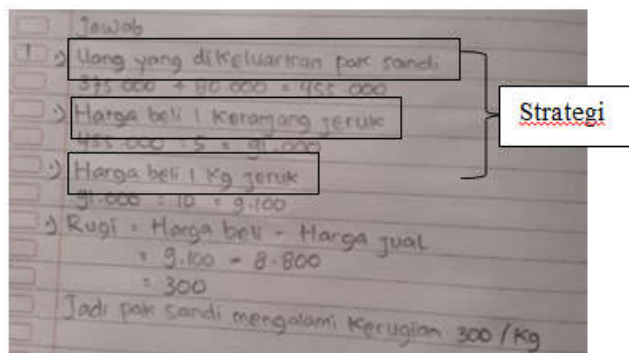 Jawab
1 Uang yang dikeluarkan pak sandi
375.000 + 80.000 = 455.000
Harga beli 1 Keranjang jeruk
455.000 : 5 = 91.000
Harga beli 1 Kg jeruk
91.000 : 10 = 9.100
Rugi = Harga beli - Harga jual
= 9.100 - 8.800
= 300
Jadi pak sandi mengalami kerugian 300/Kg
Strategi